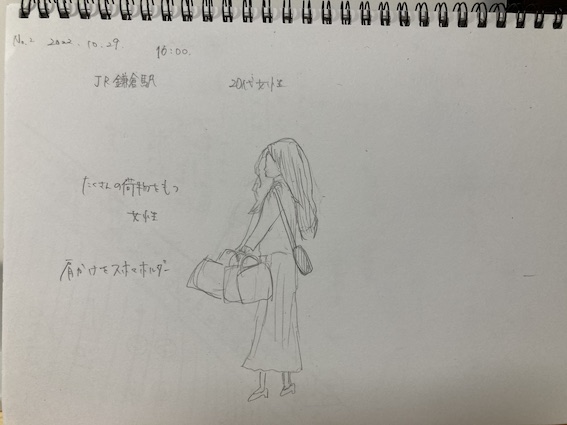 No.2 2022.10.29. 16:00.
JR鎌倉駅 20代女性
たくさんの荷物をもつ
女性
肩かけをスホマホルダー